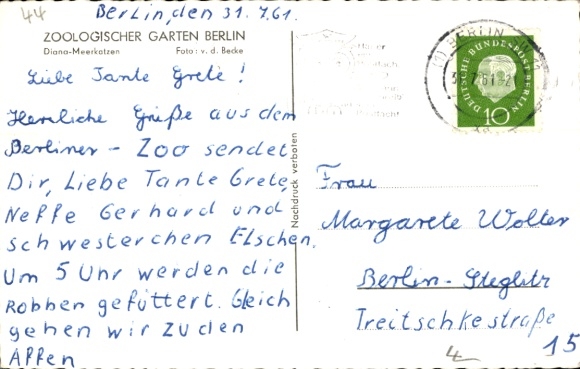 44
Berlin, den 31. 7. 61.
ZOOLOGISCHER GARTEN BERLIN
Diana-Meerkatzen Foto: v. d. Becke
Liebe Tante Grete!
Herzliche Grüße aus dem
Berliner - Zoo sendet
Dir, Liebe Tante Grete,
Neffe Gerhard und
schwesterchen Elschen.
Um 5 Uhr werden die
Robben gefüttert. Gleich
gehen wir zu den
Affen
Nachdruck verboten
BERLIN
DEUTSCHE BUNDESPOST BERLIN
10
Frau
Margarete Wolter
Berlin-Steglitz
Treitschkestraße
15
4